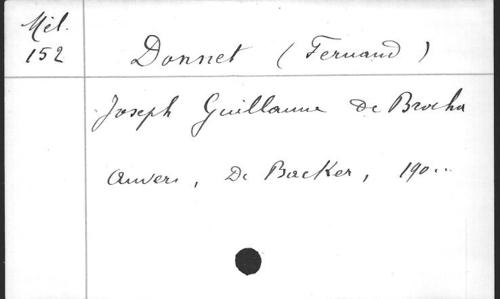 Mél.
152
Donnet (Fernand)
Joseph Guillaume de Brocha
Anvers, De Backer, 190...